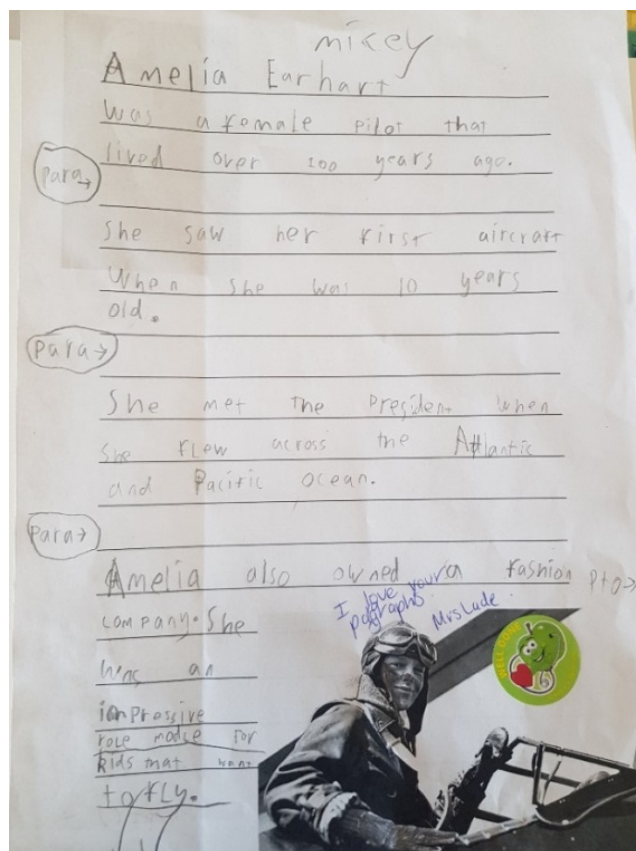 mikey
Amelia Earhart
Was a female pilot that
lived over 100 years ago.
Para→
She saw her first aircraft
When she was 10 years
old.
Para→
She met the President when
she flew across the Atlantic
and Pacific ocean.
Para→
Amelia also owned a fashion
pto→
company. She
was an
impressive
role modle for
kids that want
to fly.
I love your
pagraphs.
Mrs Lade.
WELL DONE